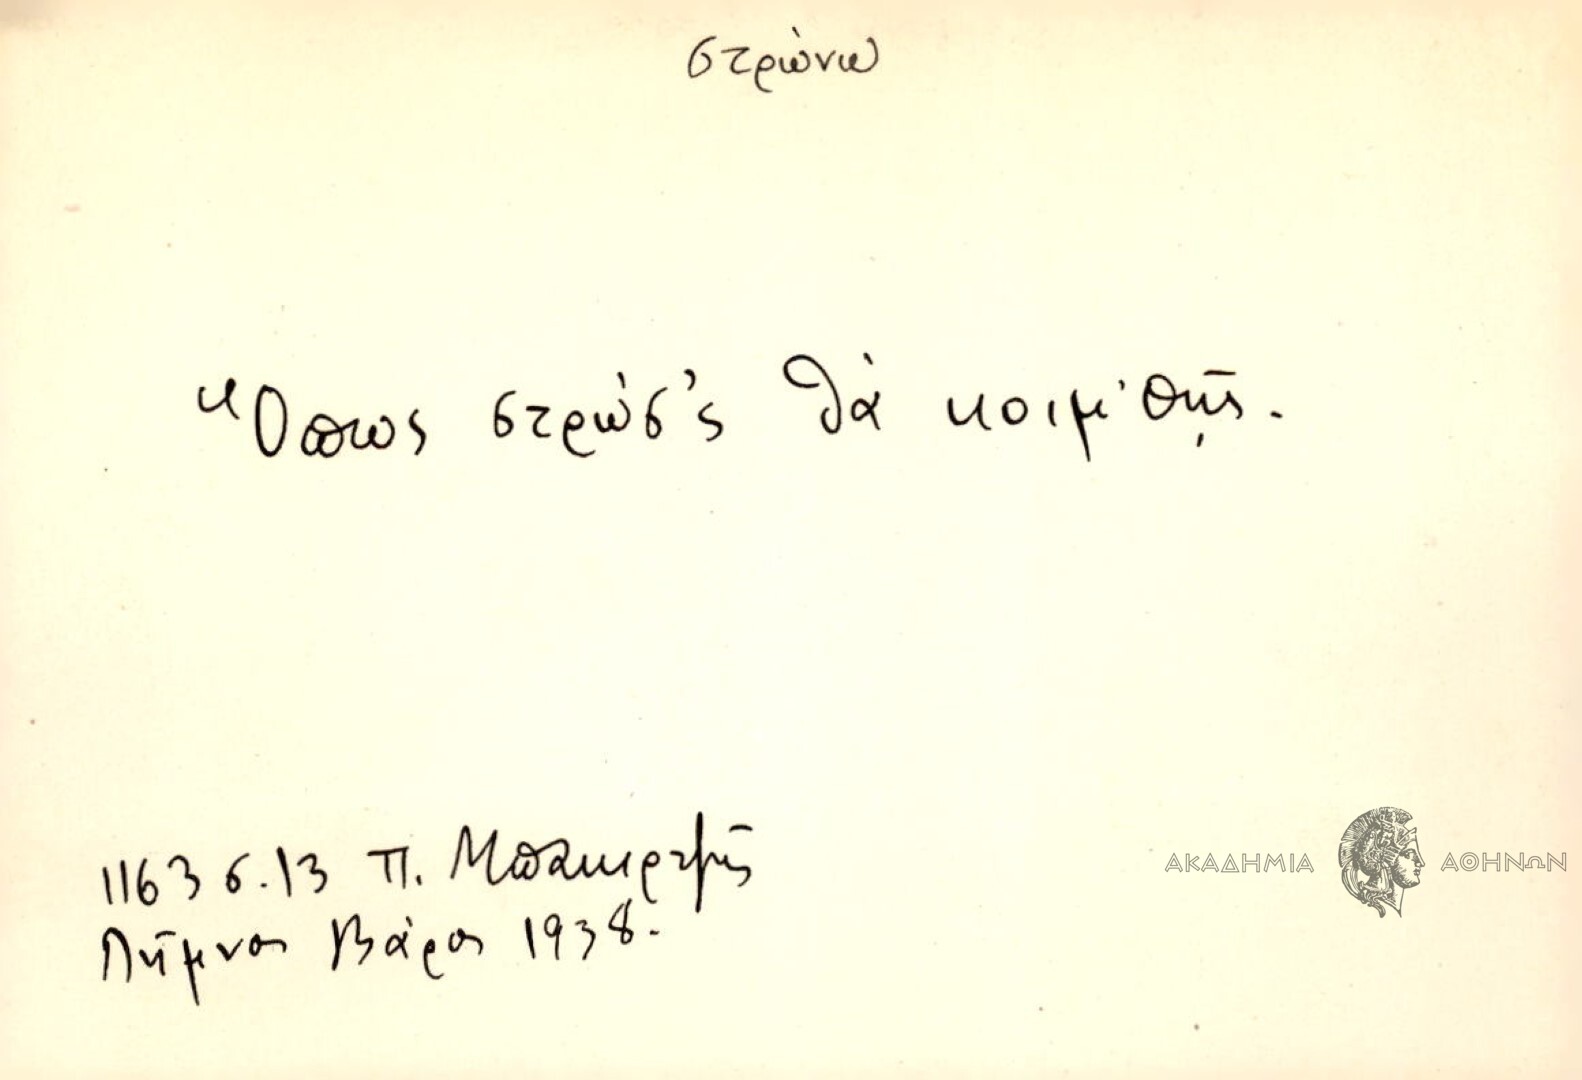 στρώνω
Ὅπως στρώσ'ς θὰ κοιμ'θῇς.
1163 σ.13 Π. Μπακιρτζῆς
Λῆμνος Βάρος 1938.
ΑΚΑΔΗΜΙΑ ΑΘΗΝΩΝ